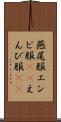 燕尾服エン
ビ服え
んび服